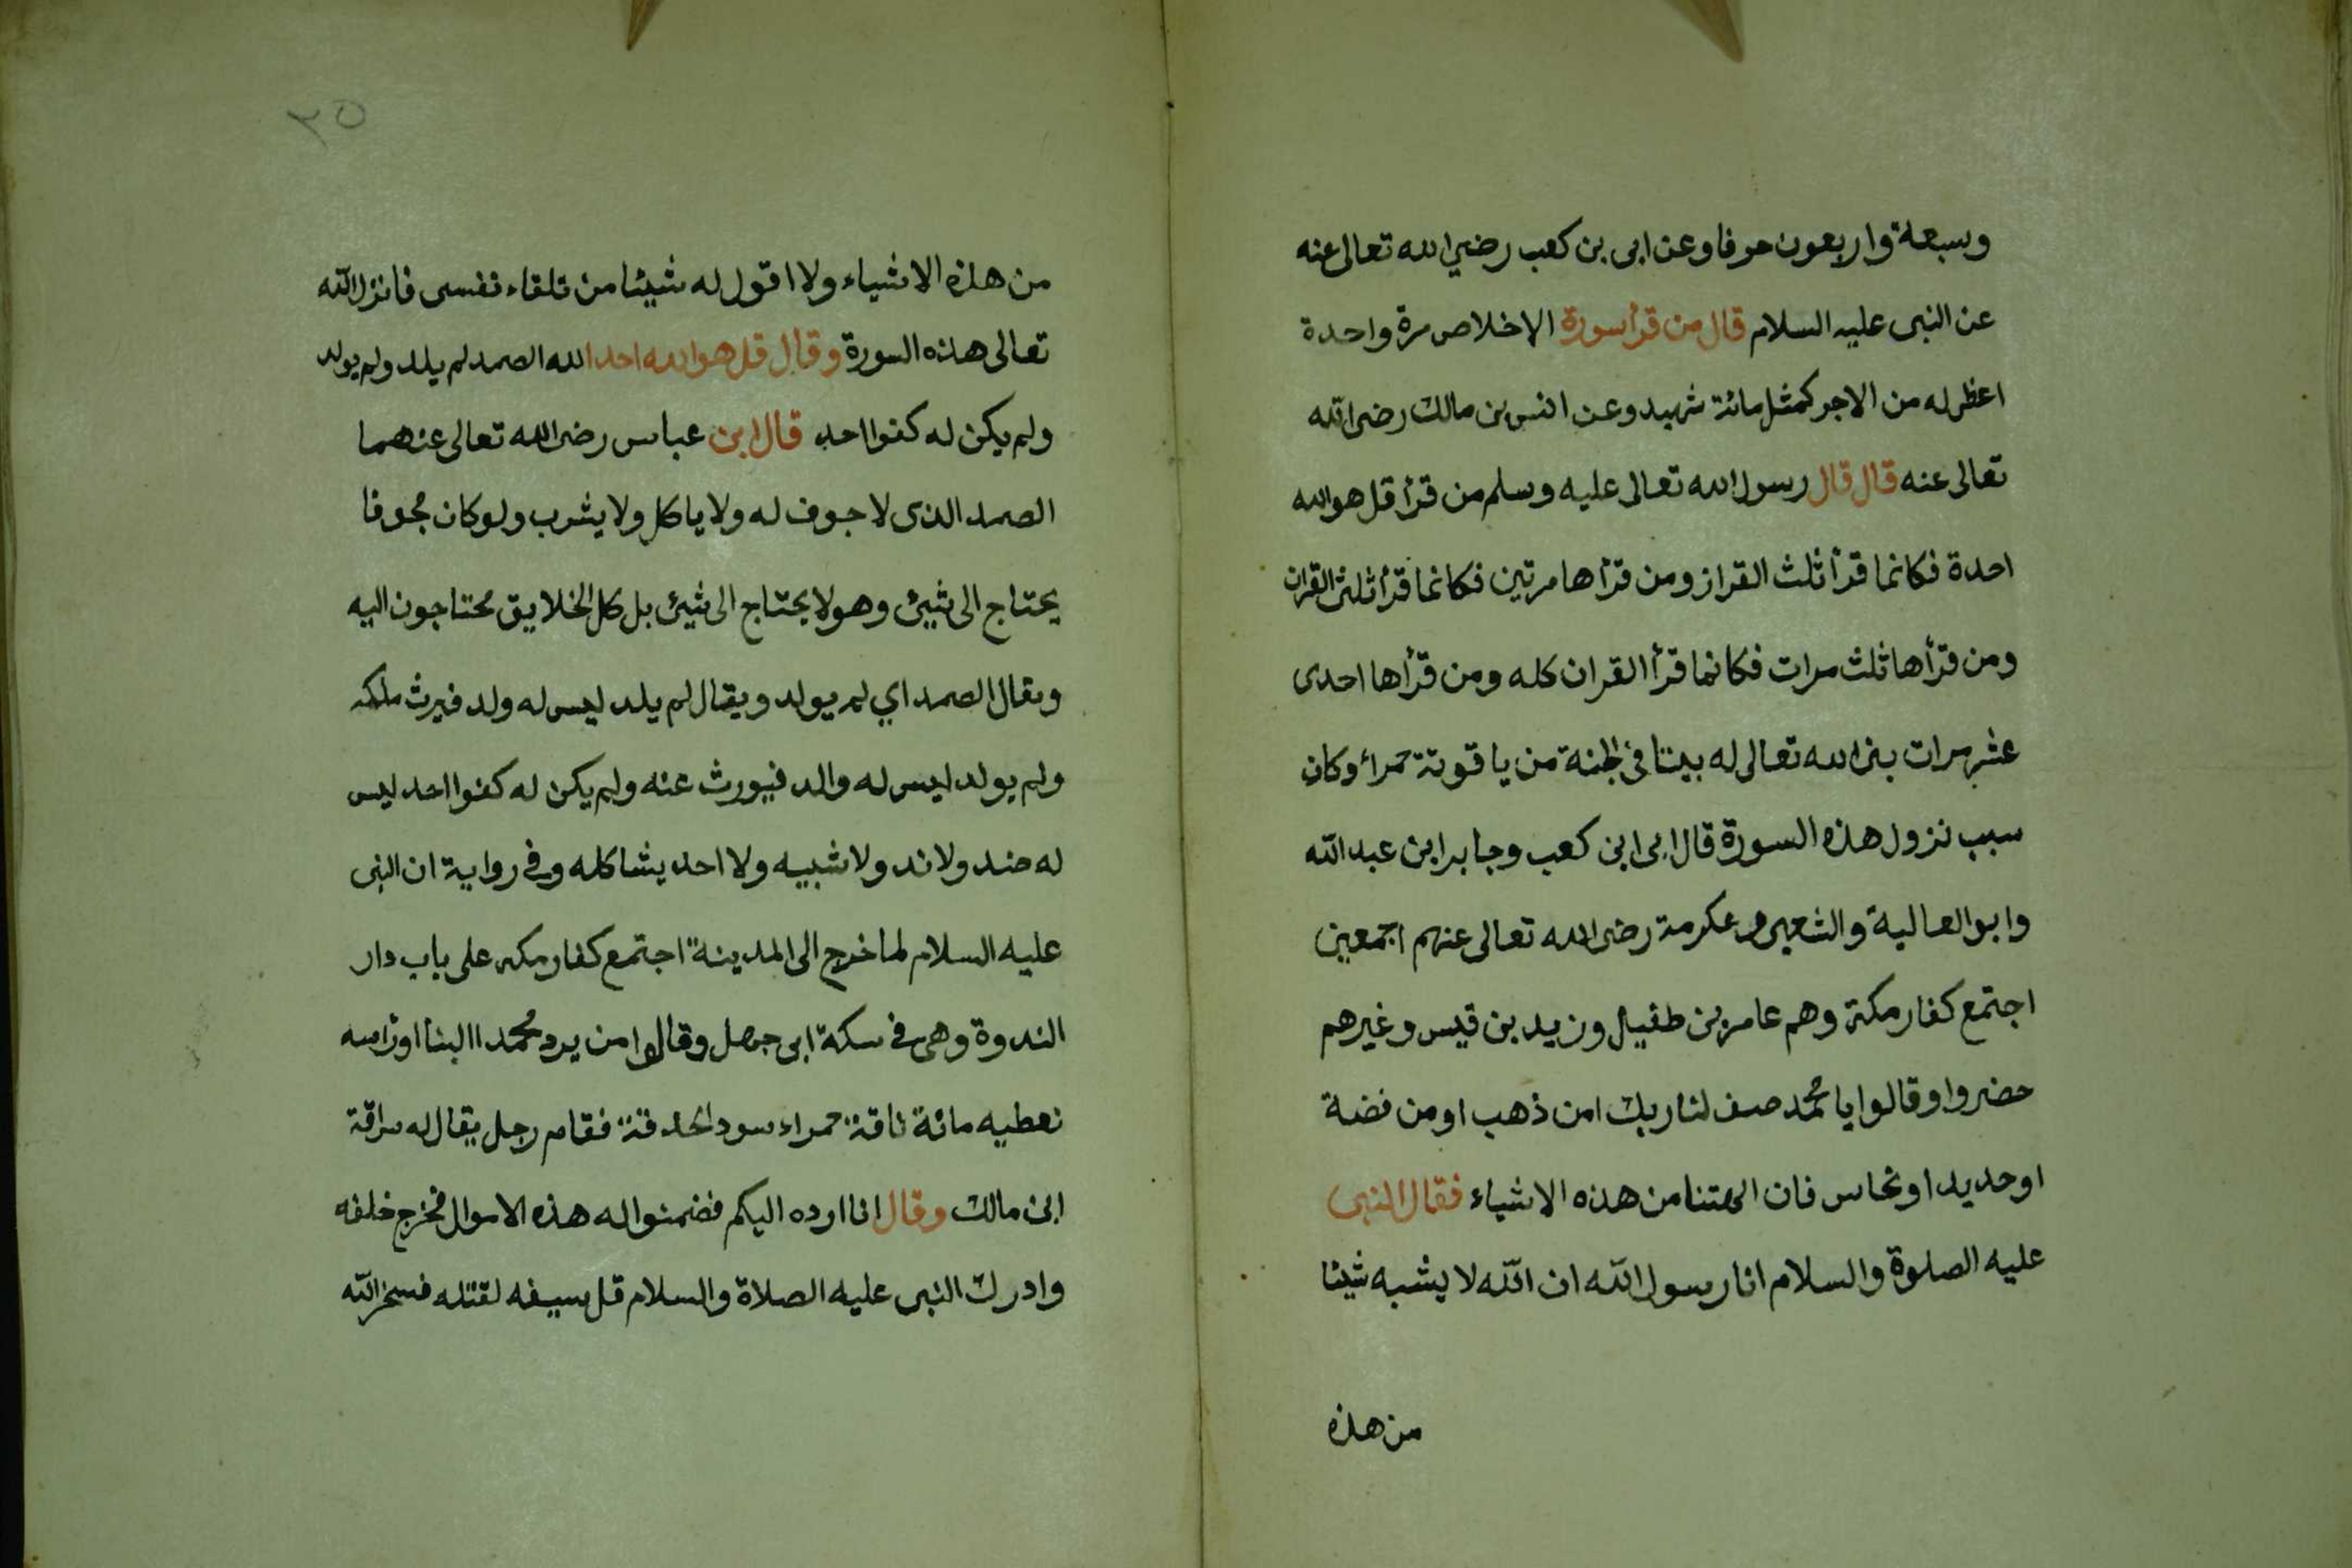 وسبعة واربعون حرفا وعن ابى بن كعب رضي الله تعالى عنه
عن النبى عليه السلام قال من قرأ سورة الاخلاص مرة واحدة
اعطى له من الاجر كمثل مائة شهيد وعن انس بن مالك رضى الله
تعالى عنه قال قال رسول الله تعالى عليه وسلم من قرأ قل هو الله
احدة فكانما قرأ ثلث القران ومن قرأها مرتين فكانما قرأ ثلثى القران
ومن قرأها ثلث مرات فكانما قرأ القران كله ومن قرأها احدى
عشر مرات بنى الله تعالى له بيتا فى الجنة من ياقوتة حمراء وكان
سبب نزول هذه السورة قال ابى ابن كعب وجابر ابن عبد الله
وابو العالية والشعبى وعكرمة رضى الله تعالى عنهم اجمعين
اجتمع كفار مكة وهم عامر بن طفيل وزيد بن قيس وغيرهم
حضروا وقالوا يا محمد صف لنا ربك امن ذهب او من فضة
او حديد او نحاس فان الهتنا من هذه الاشياء فقال النبى
عليه الصلوة والسلام انا رسول الله ان الله لا يشبه شيئا
من هذه
٣٥
من هذه الاشياء ولا اقول له شيئا من تلقاء نفسى فانزل الله
تعالى هذه السورة وقال قل هو الله احد الله الصمد لم يلد ولم يولد
ولم يكن له كفوا احد قال ابن عباس رضى الله تعالى عنهما
الصمد الذى لا جوف له ولا ياكل ولا يشرب ولو كان مجوفا
يحتاج الى شيئ وهو لا يحتاج الى شيئ بل كل الخلايق محتاجون اليه
ويقال الصمد اي لم يولد ويقال لم يلد ليس له ولد فيرث ملكه
ولم يولد ليس له والد فيورث عنه ولم يكن له كفوا احد ليس
له ضد ولا ند ولا شبيه ولا احد يشاكله وفى رواية ان النبى
عليه السلام لما خرج الى المدينة اجتمع كفار مكه على باب دار
الندوة وهى فى سكة ابى جهل وقالوا من يرد محمدا الينا او رأسه
نعطيه مائة ناقة حمراء سود الحدقة فقام رجل يقال له سراقة
ابن مالك وقال انا ارده اليكم فضمنوا له هذه الاموال فخرج خلفه
وادرك النبى عليه الصلاة والسلام قل سيفه لقتله فسخر الله